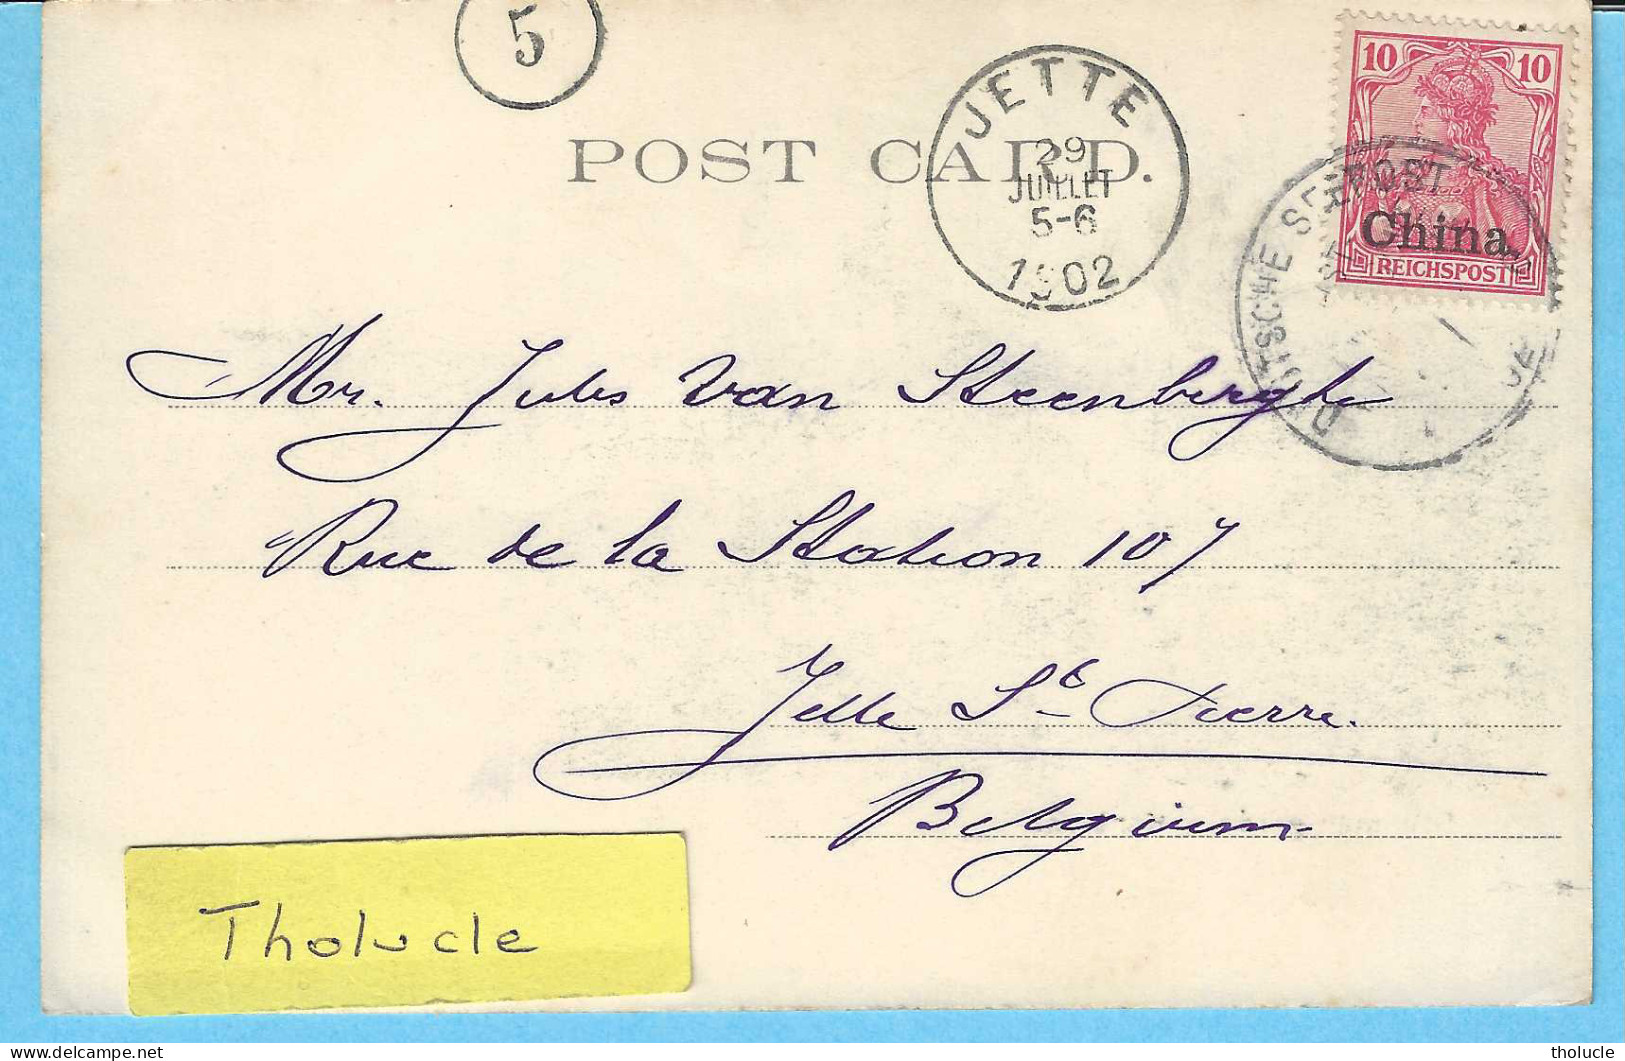 5
POST CARD.
JETTE
29
JUILLET
5-6
1902
10 10
China
REICHSPOST
DEUTSCHE SEEPOST
Mr. Jules Van Steenberghe
Rue de la Station 107
Jette St Pierre.
Belgium
Tholucle
tholucle